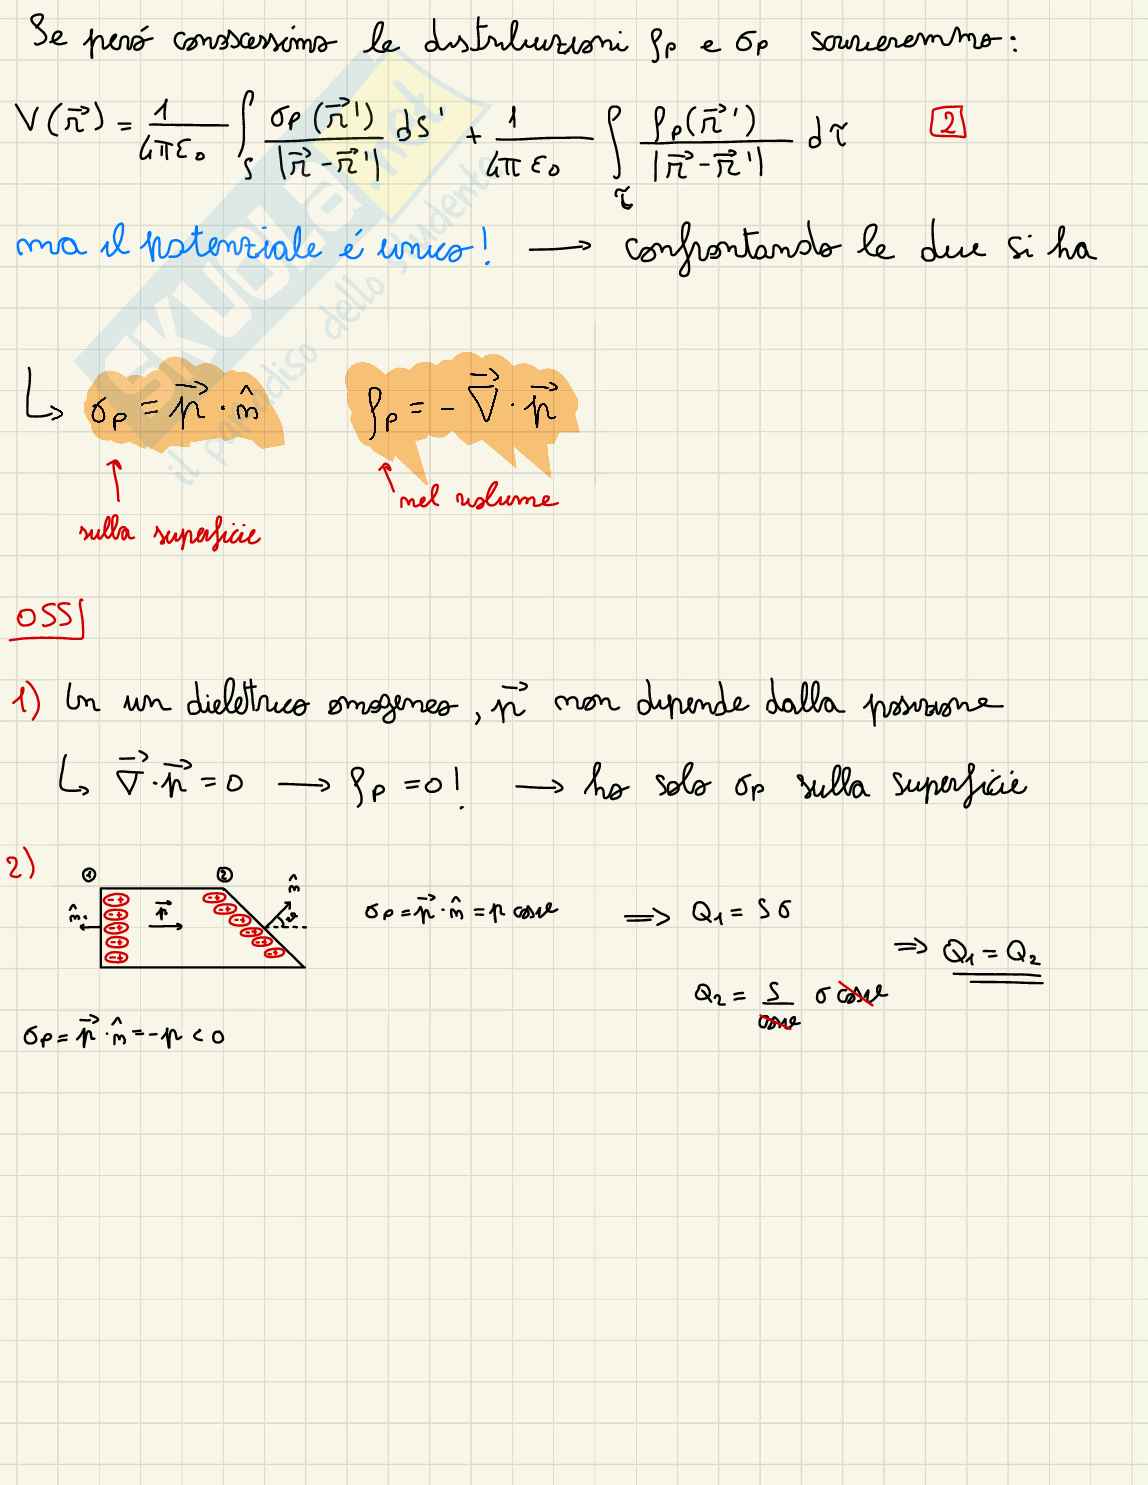 Se però conoscessimo le distribuzioni ρp e σp scriveremmo:
V(r⃗) = 1/(4πε₀) ∫_S σp(r⃗')/|r⃗ - r⃗'| dS' + 1/(4πε₀) ∫_τ ρp(r⃗')/|r⃗ - r⃗'| dτ [2]
ma il potenziale é unico! → confrontando le due si ha
↳ σp = p⃗ · n̂ ρp = - ∇⃗ · p⃗
↑ sulla superficie ↑ nel volume
OSS
1) In un dielettrico omogeneo, p⃗ non dipende dalla posizione
↳ ∇⃗ · p⃗ = 0 → ρp = 0! → ho solo σp sulla superficie
2)
① ②
n̂₁ p⃗ n̂ ϑ
σp = p⃗ · n̂ = p cosϑ ⇒ Q₁ = S σ
⇒ Q₁ = Q₂
Q₂ = S/cosϑ σ cosϑ
σp = p⃗ · n̂ = -p < 0
SKUOLA.net
il paradiso dello studente